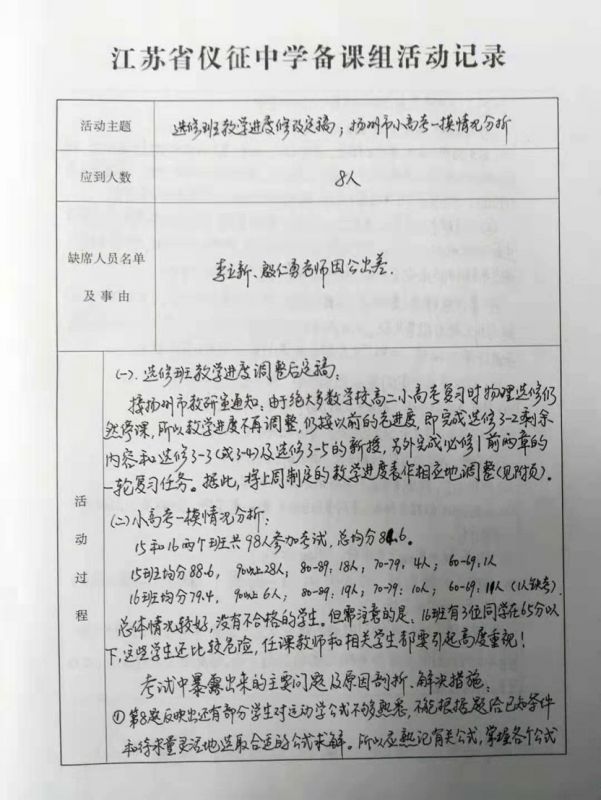 江苏省仪征中学备课组活动记录
活动主题
选修班教学进度修改定稿；扬州市小高考一摸情况分析
应到人数
8人
缺席人员名单
及事由
李立新、殷仁勇老师因公出差.
活动过程
(一).选修班教学进度调整后定稿：
接扬州市教研室通知：由于绝大多数学校高二小高考复习时物理选修仍
然停课，所以教学进度不再调整，仍按以前的老进度，即完成选修3-2剩余
内容和选修3-3(或3-4)及选修3-5的新授，另外完成必修1前两章的
一轮复习任务。据此，将上周制定的教学进度表作相应地调整(见附页)。
(二)小高考一摸情况分析：
15和16两个班共98人参加考试，总均分84.6。
15班均分88.6，90以上28人；80-89：18人；70-79，4人；60-69：1人
16班均分79.4，90以上6人；80-89：19人；70-79：10人；60-69：11人(1人缺考).
总体情况较好，没有不合格的学生。但需注意的是：16班有3位同学在65分以
下，这些学生还比较危险，任课教师和相关学生都要引起高度重视！
考试中暴露出来的主要问题及原因剖析、解决措施：
①第8题反映出还有部分学生对运动学公式不够熟悉，不能根据题给已知条件
和待求量灵活地选取合适的公式求解。所以应熟记有关公式，掌握各个公式